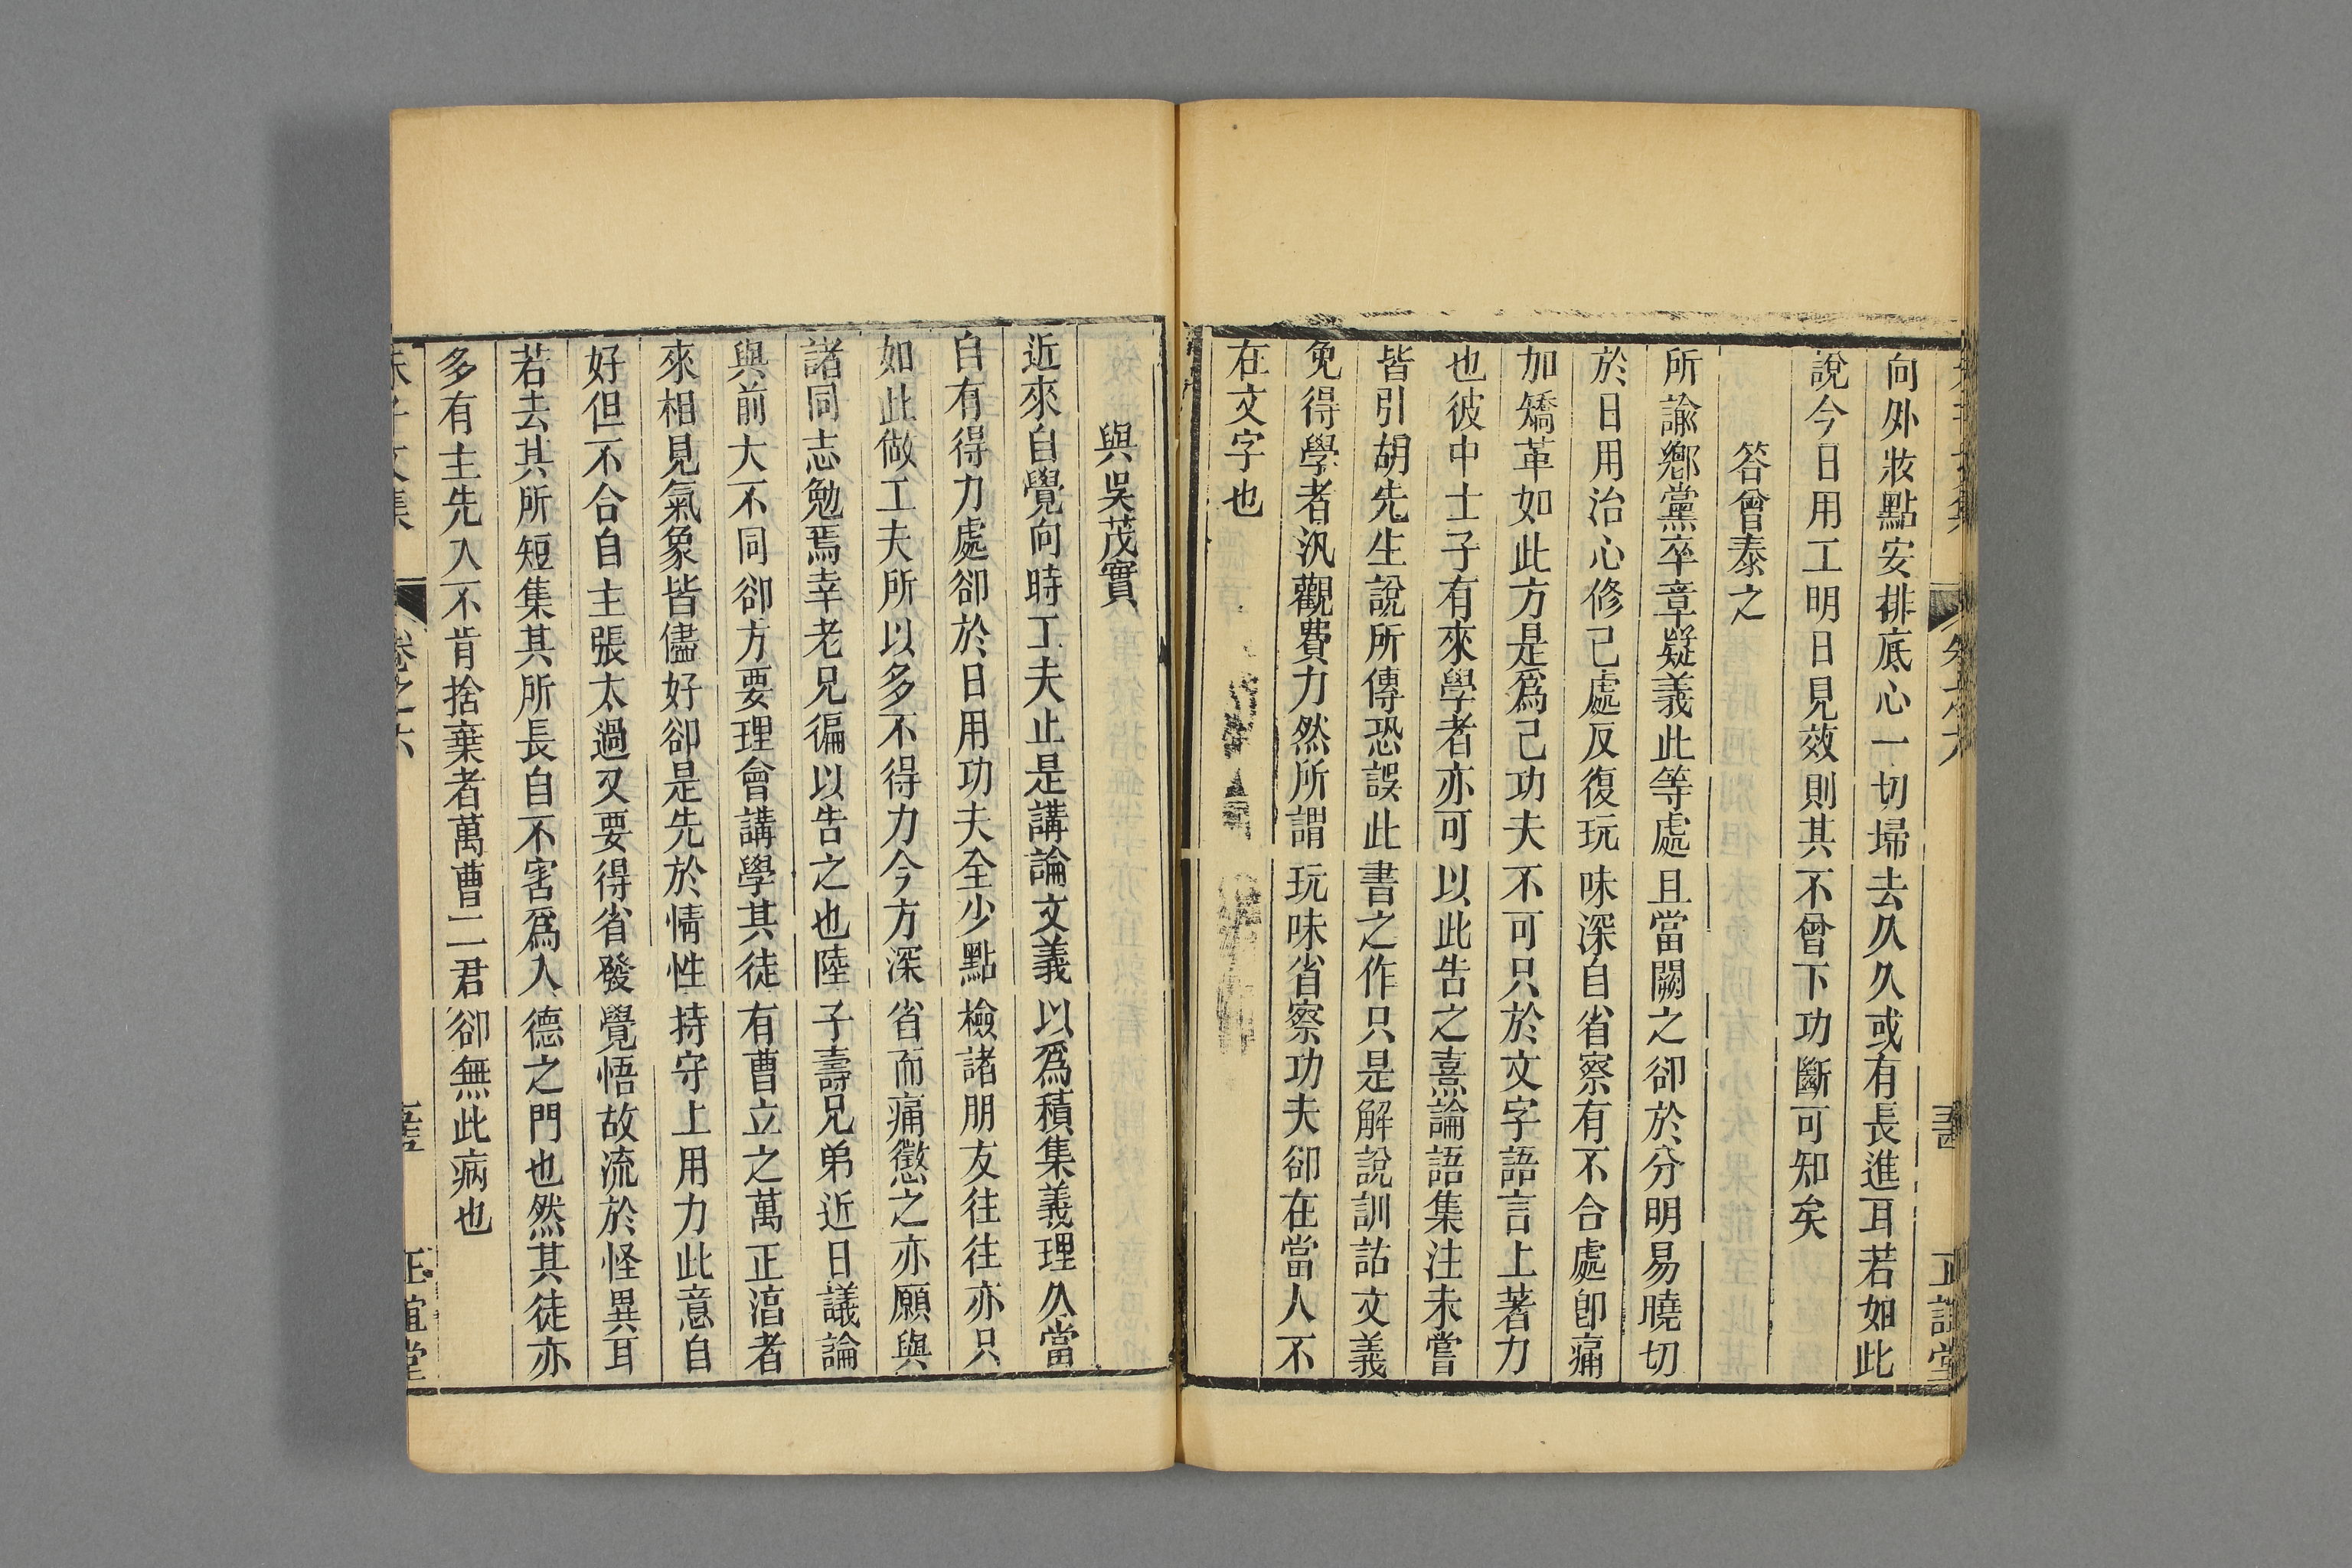 向外妝點安排底心一切掃去久久或有長進耳若如此
說今日用工明日見效則其不曾下功斷可知矣
答曾泰之
所諭鄉黨卒章疑義此等處且當闕之卻於分明易曉切
於日用治心修己處反復玩味深自省察有不合處卽痛
加矯革如此方是爲己功夫不可只於文字語言上著力
也彼中士子有來學者亦可以此告之熹論語集注未嘗
皆引胡先生說所傳恐誤此書之作只是解說訓詁文義
免得學者汎觀費力然所謂玩味省察功夫卻在當人不
在文字也
與吳茂實
近來自覺向時工夫止是講論文義以爲積集義理久當
自有得力處卻於日用功夫全少點檢諸朋友往往亦只
如此做工夫所以多不得力今方深省而痛懲之亦願與
諸同志勉焉幸老兄徧以告之也陸子壽兄弟近日議論
與前大不同卻方要理會講學其徒有曹立之萬正淳者
來相見氣象皆儘好卻是先於情性持守上用力此意自
好但不合自主張太過又要得省發覺悟故流於怪異耳
若去其所短集其所長自不害爲入德之門也然其徒亦
多有主先入不肯捨棄者萬曹二君卻無此病也
朱子文集 卷之六 正誼堂